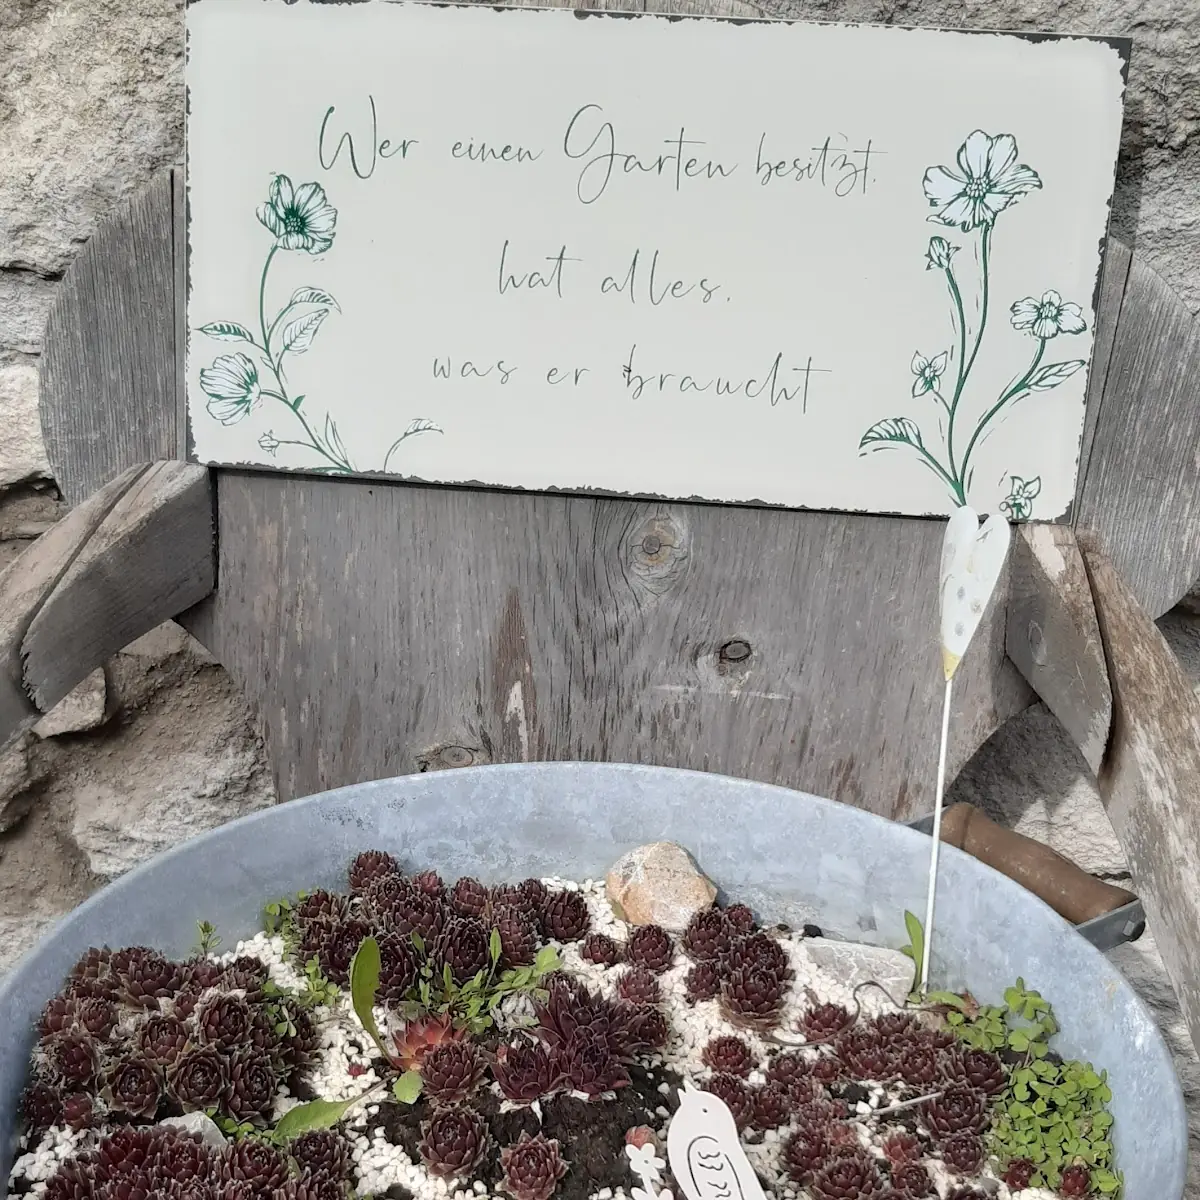 Wer einen Garten besitzt,
hat alles,
was er braucht